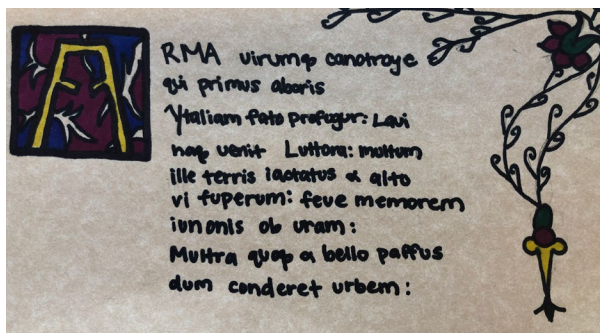 ARMA uirumq canotroye
qui primus aboris
Ytaliam fato profugur: Laui
naq uenit Luttora: multum
ille terris iactatus & alto
vi fuperum: feue memorem
iunonis ob uram:
Multra quoq a bello paffus
dum conderet urbem: